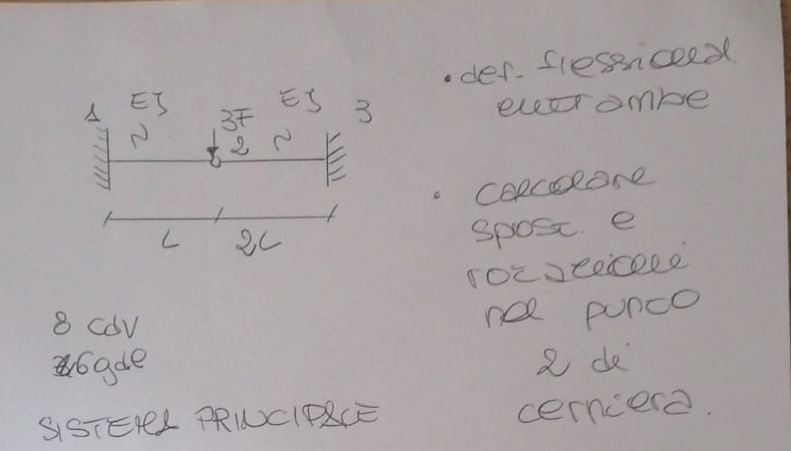 1 EJ 3F EJ 3
~ 2 ~
L 2L
8 cdv
6 gdl
SISTEMA PRINCIPALE
• def. flessionale
entrambe
• calcolare
spost. e
rotazioni
nel punto
2 di
cerniera.